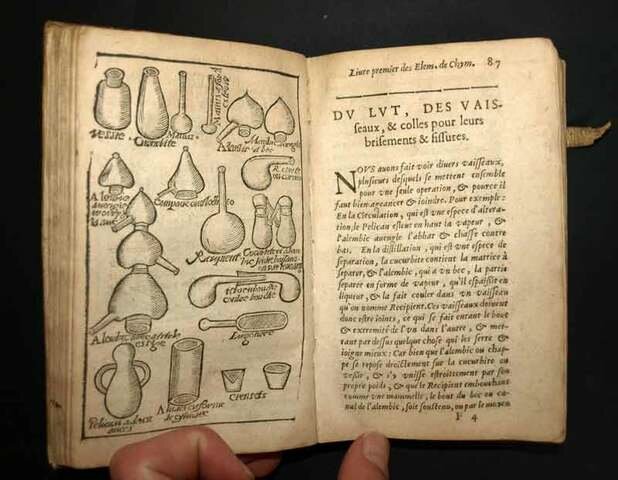 Vessie
Cucurbite
Matras
A lembic
a bec
Recipient
Cornue
creusets
Pelican a deux
ances
A
forme
de
Livre premier des Elem. de Chym. 87
DV LVT, DES VAIS-
seaux, & colles pour leurs
brisements & fissures.
NOVS auons fait voir diuers vaisseaux,
plusieurs desquels se mettent ensemble
pour vne seule operation, & pource il
faut bien ageancer & ioindre. Pour exemple:
En la Circulation, qui est vne espece d'altera-
tion, le Pelican esleue en haut la vapeur, &
l'alembic aueugle l'abbat & chasse contre
bas. En la distillation, qui est vne espece de
separation, la cucurbite contient la matiere à
separer, & l'alembic, qui a vn bec, la partie
separée en forme de vapeur, qu'il espaissit en
liqueur, & la fait couler dans vn vaisseau
qu'on nomme Recipient. Ces vaisseaux doiuent
donc estre ioints, ce qui se fait entant le bout
& extremité de l'vn dans l'autre, & met-
tant par dessus quelque chose qui les serre &
ioigne mieux: Car bien que l'alembic ou chap-
pe se repose directement sur la cucurbite ou
vessie, & s'y vnisse estroittement par son
propre poids, & que le Recipient embouchant
comme vne mammelle, le bout du bec ou ca-
nal de l'alembic, soit soustenu, ou par le moyen
F 4